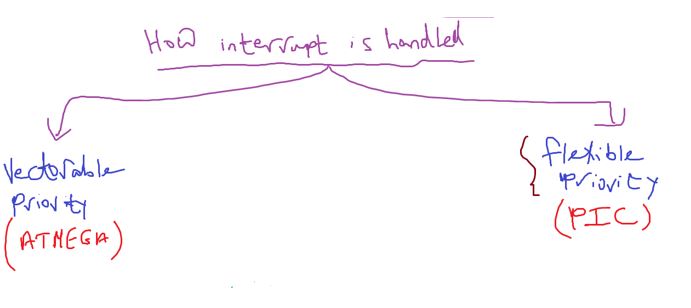 How interrupt is handled
Vectorable
Priority
(ATMEGA)
flexible
Priority
(PIC)